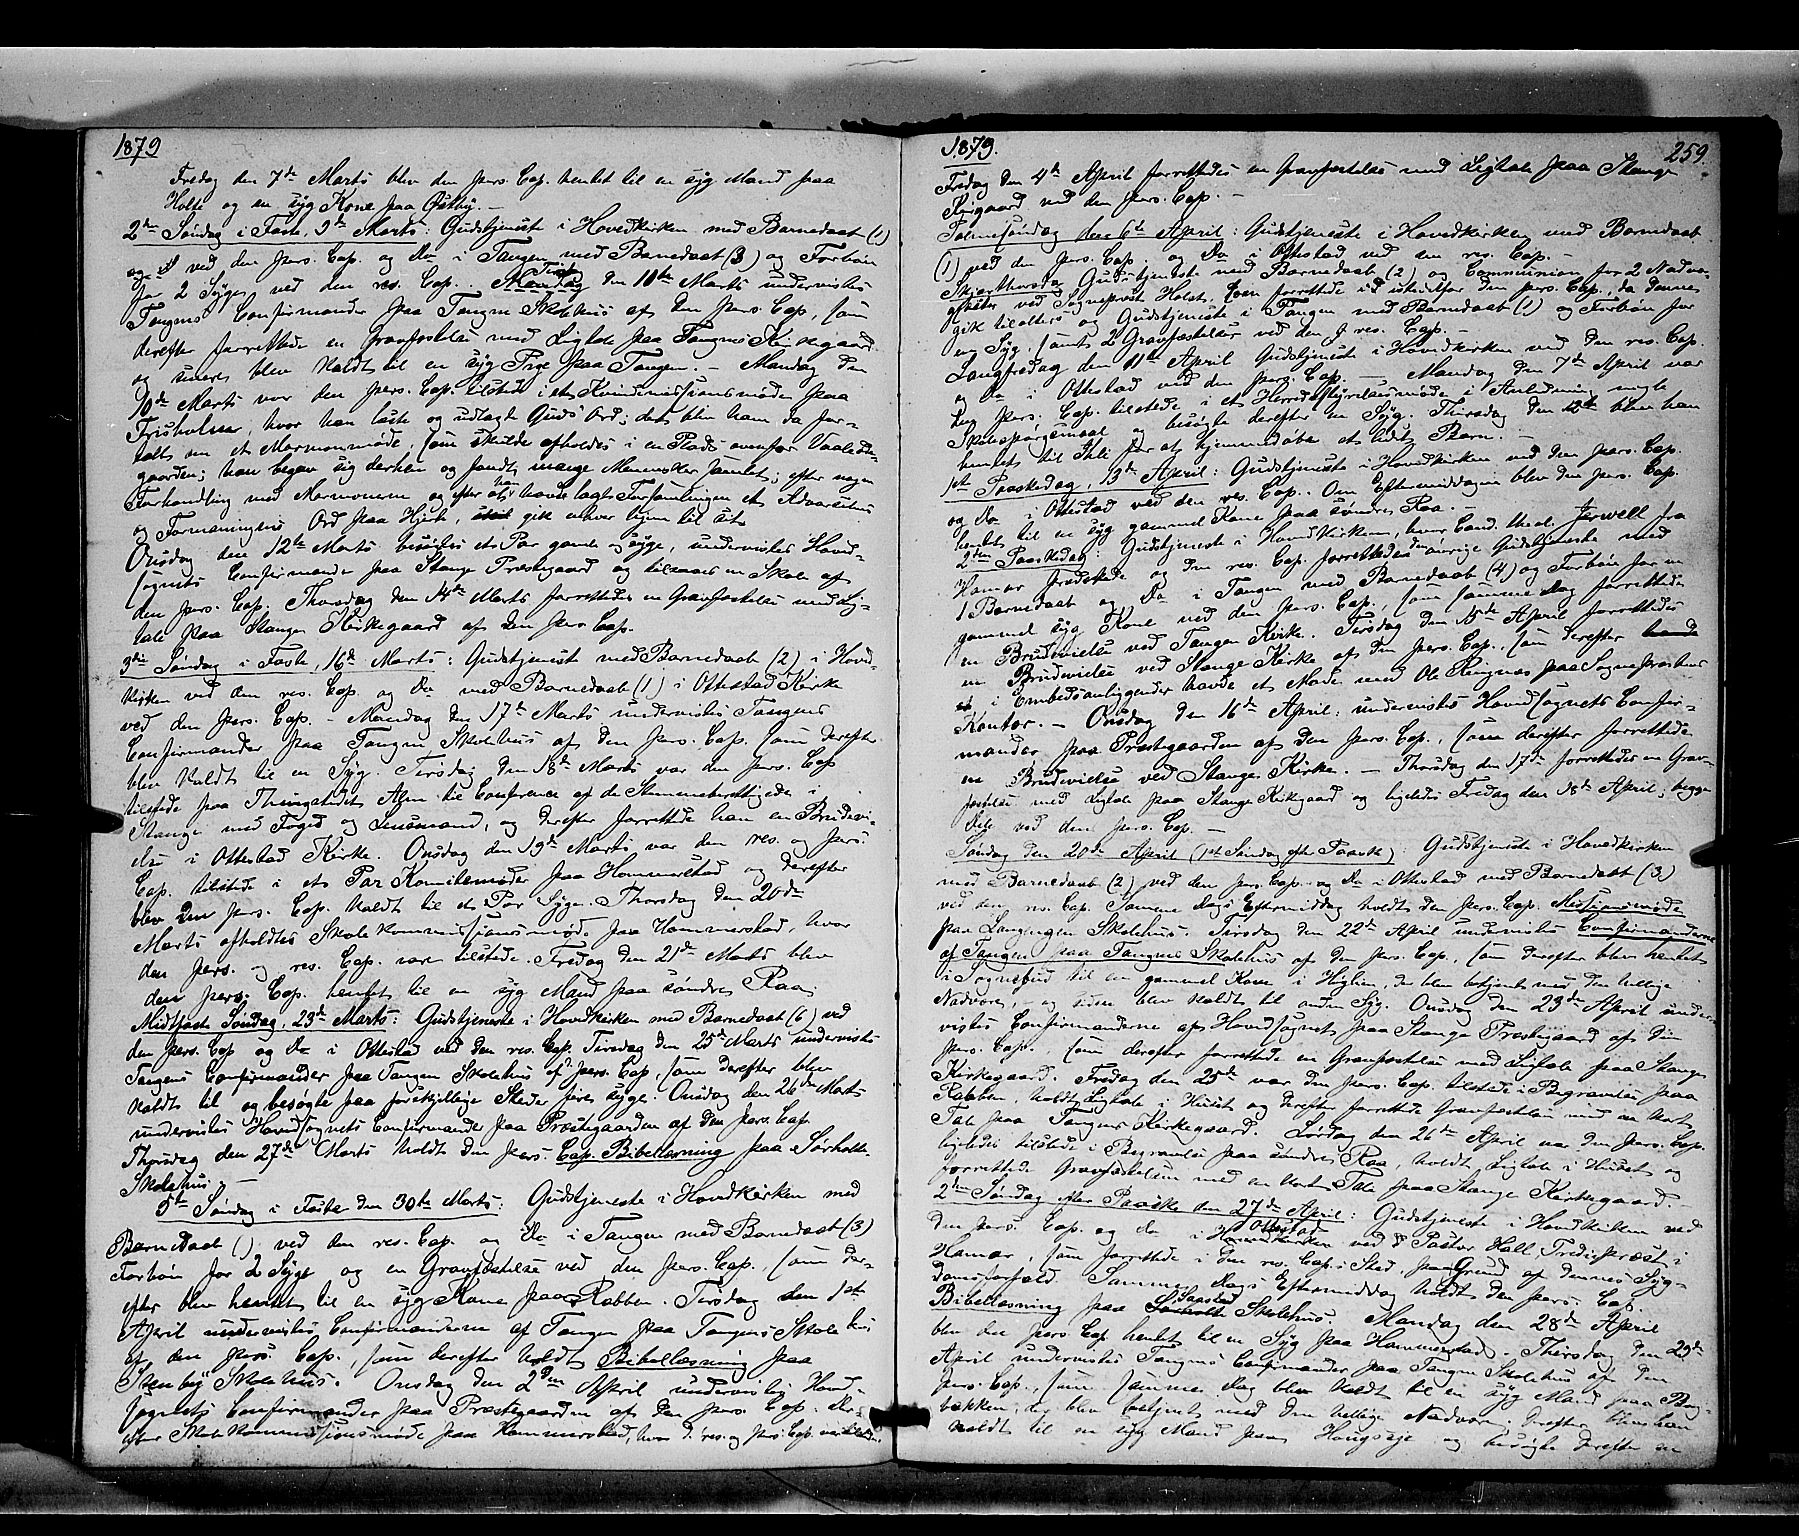 1879
Fredag den 7de Marts blev den pers. Cap. hentet til en syg Mand paa
Holte og en syg Kone paa Østby. —
2den Søndag i Faste, 9de Marts: Gudstjeneste i Hovedkirken med Barnedaab (1)
ved den pers. Cap. og Do i Tangen med Barnedaab (3) og Forbøn
for 2 Syge, ved den res. Cap. Tirsdag den 11te Marts undervistes
Tangens Confirmander paa Tangen Skolehus af den pers. Cap., som
derefter forrettede en Gravfæstelse med Ligtale paa Tangens Kirkegaard
og senere blev kaldt til en syg Pige paa Tangen. — Mandag den
10de Marts var den pers. Cap. tilstede i et Kvindemissionsmøde paa
Frisholm, hvor han læste og udlagde Guds Ord; der blev han da for-
talt om et Mormonmøde, som skulde afholdes i en Plads ovenfor
gaarden; han begav sig derhen og fandt mange Mennesker samlet; efter nogen
Forhandling med Mormonen og efter at han havde lagt Forsamlingen et Advarselens
og Formaningens Ord paa Hjerte, gik enhver hjem til sit.
Onsdag den 12te Marts besøgtes et Par gamle og syge, undervistes Hoved-
sognets Confirmander paa Stange Præstegaard og tilsaaes en Skole af
den pers. Cap. Thorsdag den 14de Marts forrettedes en Gravfæstelse med Lig-
tale paa Stange Kirkegaard af den pers. Cap.
3die Søndag i Faste, 16de Marts: Gudstjeneste med Barnedaab (2) i Hoved-
kirken ved den res. Cap. og Do med Barnedaab (1) i Ottestad Kirke
ved den pers. Cap. — Mandag den 17de Marts undervistes Tangens
Confirmander paa Tangen Skolehus af den pers. Cap. som derefter
blev kaldt til en Syg. Tirsdag den 18de Marts var den pers. Cap.
tilstede paa Thingstedet Alm til Conference af de Stemmeberettigede i
Stange med Foged og Lensmand, og derefter forrettede han en Brudevi-
else i Ottestad Kirke. Onsdag den 19de Marts var den res. og pers.
Cap. tilstede i et Par Komitemøder paa Hommerstad og derefter
blev den pers. Cap. kaldt til et Par Syge. Thorsdag den 20de
Marts afholdtes Skolekommissionsmøde paa Hommerstad, hvor
den pers. og res. Cap. var tilstede. Fredag den 21de Marts blev
den pers. Cap. hentet til en syg Mand paa søndre Raa.
Midtfaste Søndag, 23de Marts: Gudstjeneste i Hovedkirken med Barnedaab (6) ved
den pers. Cap. og Do i Ottestad ved den res. Cap. Tirsdag den 25de Marts undervistes
Tangens Confirmander paa Tangen Skolehus af d. pers. Cap., som derefter blev
kaldt til og besøgte paa forskjellige Steder flere syge. Onsdag den 26de Marts
undervistes Hovedsognets Confirmander paa Præstegaarden af den pers. Cap.
Thorsdag den 27de Marts holdt den pers. Cap. Bibellæsning paa Sørholte
Skolehus. —
5te Søndag i Faste den 30te Marts: Gudstjeneste i Hovedkirken med
Barnedaab (1) ved den res. Cap. og Do i Tangen med Barnedaab (3)
Forbøn for 2 Syge og en Gravfæstelse ved den pers. Cap., som der-
efter blev hentet til en syg Kone paa Rabben. Tirsdag den 1ste
April undervistes Confirmanderne af Tangen paa Tangens Skolehus
af den pers. Cap., som derefter holdt Bibellæsning paa
Stenby Skolehus. Onsdag den 2den April undervistes Hoved-
sognets Confirmander paa Præstegaarden af den pers. Cap. Der-
efter Skolekommissionsmøde paa Hommerstad, hvor d. res. og pers. Cap. var tilstede.
1879. 259.
Fredag den 4de April forrettedes en Gravfæstelse med Ligtale paa Stange
Kirkegaard ved den pers. Cap. —
Palmesøndag den 6te April: Gudstjeneste i Hovedkirken med Barnedaab
(1) ved den pers. Cap. og Do i Ottestad ved den res. Cap. —
Skjærthorsdag Gudstjeneste med Barnedaab (2) og Communion for 2 Nadver-
gjester ved Sogneprest Holst, som forrettede istedetfor den pers. Cap., da denne
gik til alters og Gudstjeneste i Tangen med Barnedaab (1) og Forbøn for
en Syg, samt 2 Gravfæstelser ved den res. Cap. —
Langfredag den 11te April Gudstjeneste i Hovedkirken ved den res. Cap.
og Do i Ottestad ved den pers. Cap. — Mandag den 7de April var
den pers. Cap. tilstede i et Herredsstyrelsesmøde i Anledning nogle
Skolespørgsmaal og besøgte derefter en Syg. Thirsdag den 12te blev han
hentet til for at hjemmedøbe et lidet Barn. —
1ste Paaskedag, 13de April: Gudstjeneste i Hovedkirken ved den pers. Cap.
og Do i Ottestad ved den res. Cap. Om Eftermiddagen blev den pers. Cap.
hentet til en syg gammel Kone paa søndre Raa. —
2den Paaskedag: Gudstjeneste i Hovedkirken, hvor Cand. theol. Jerwell fra
Hamar prædikede og den res. Cap. forrettede den øvrige Gudstjeneste med
1 Barnedaab og Do i Tangen med Barnedaab (4) og Forbøn for en
gammel syg Kone ved den pers. Cap., som samme Dag forrettede
en Brudevielse ved Tangen Kirke. Tirsdag den 15de April forrettedes
en Brudevielse ved Stange Kirke af den pers. Cap., som derefter
i Embedsanliggender havde et Møde med Ole Ringnæs paa Sogneprestens
Kontor. — Onsdag den 16de April: undervistes Hovedsognets Confir-
mander paa Præstegaarden af den pers. Cap., som derefter forrettede
en Brudevielse ved Stange Kirke. — Thorsdag den 17de forrettedes en Grav-
fæstelse med Ligtale paa Stange Kirkegaard og ligeledes Fredag den 18de April; begge
Dele ved den pers. Cap. —
Søndag den 20de April (1ste Søndag efter Paaske): Gudstjeneste i Hovedkirken
med Barnedaab (2) ved den pers. Cap. og Do i Ottestad med Barnedaab (3)
ved den res. Cap. Samme Dags Eftermiddag holdt den pers. Cap. Missionsmøde
paa Skolehus. Tirsdag den 22de April undervistes Confirmanderne
af Tangen paa Tangens Skolehus af den pers. Cap., som derefter blev hentet
i Sognebud til en gammel Kone i Høglien, der blev betjent med den hellige
Nadvere, og siden blev kaldt til anden Syg. Onsdag den 23de April under-
vistes Confirmanderne af Hovedsognet paa Stange Præstegaard af den
pers. Cap., som derefter forrettede en Gravfæstelse med Ligtale paa Stange
Kirkegaard. Fredag den 25de var den pers. Cap. tilstede i Begravelse paa
Rabben, holdt Ligtale i Huset og derefter forrettede Gravfæstelse med en kort
Tale paa Tangens Kirkegaard. Lørdag den 26de April var den pers. Cap.
ligeledes tilstede i Begravelse paa søndre Raa, holdt Ligtale i Huset og
forrettede Gravfæstelsen med en kort Tale paa Stange Kirkegaard. —
2den Søndag efter Paaske den 27de April: Gudstjeneste i Hovedkirken ved
den pers. Cap. og do i Ottestad ved Pastor Hall, Trediepræst i
Hamar, som forrettede i den res. Cap.s Sted, paa Grund af dennes Syg-
domsforfald. Samme Dags Eftermiddag holdt den pers. Cap.
Bibellæsning paa Skolehus. Mandag den 28de April
blev den pers. Cap. hentet til en Syg paa Hommerstad. Thirsdag den 29de
April undervistes Tangens Confirmander paa Tangen Skolehus af den
pers. Cap., som samme Dag blev kaldt til en syg Mand paa
bakken, der blev betjent med den hellige Nadvere; derefter blev han
kaldt til en syg Mand paa og besøgte derefter en